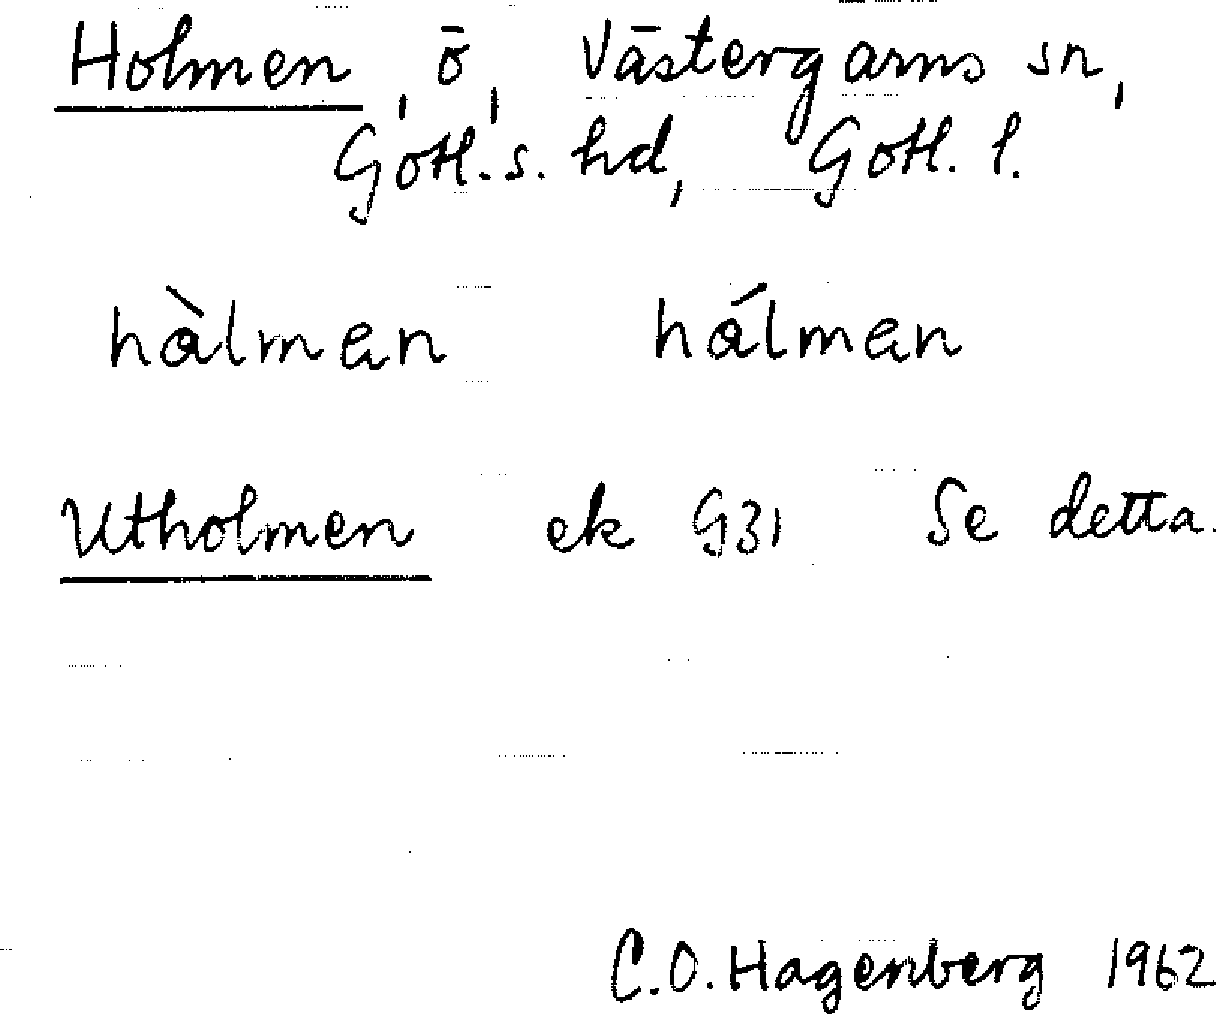 Holmen, ö, Västergarns sn,
Gotl. s. hd, Gotl. l.
hàlmən hálmən
Utholmen ek G31 Se detta.
C.O. Hagenberg 1962